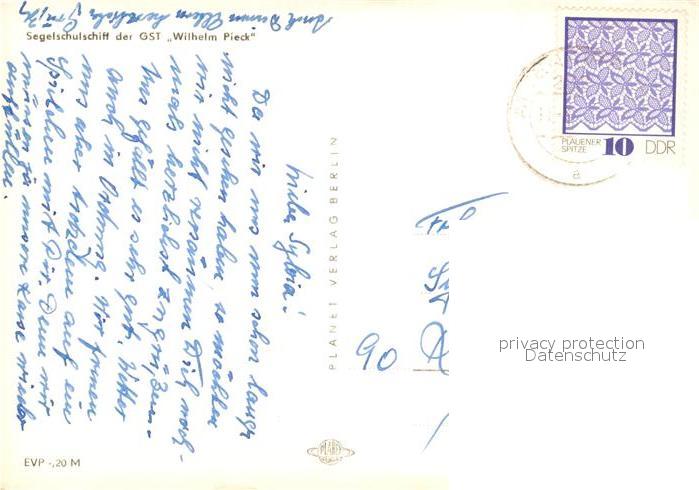 Segelschulschiff der GST „Wilhelm Pieck"
Liebe Sylvia!
Da wir uns nun schon lange
nicht gesehen haben, so möchten
wir nicht versäumen Dich noch-
mals herzlichst zu grüßen.
Uns gefällt es sehr gut. Wetter
auch in Ordnung. Wir freuen
uns aber trotzdem auf ein
Spielchen mit Dir. Denn wir
müssen ja unsere Kasse wieder
auffüllen.
Auch Deinen Eltern herzliche Grüße
EVP -,20 M
PLANET VERLAG BERLIN
PLANET
PLAUENER
SPITZE
10 DDR
a
90
privacy protection
Datenschutz